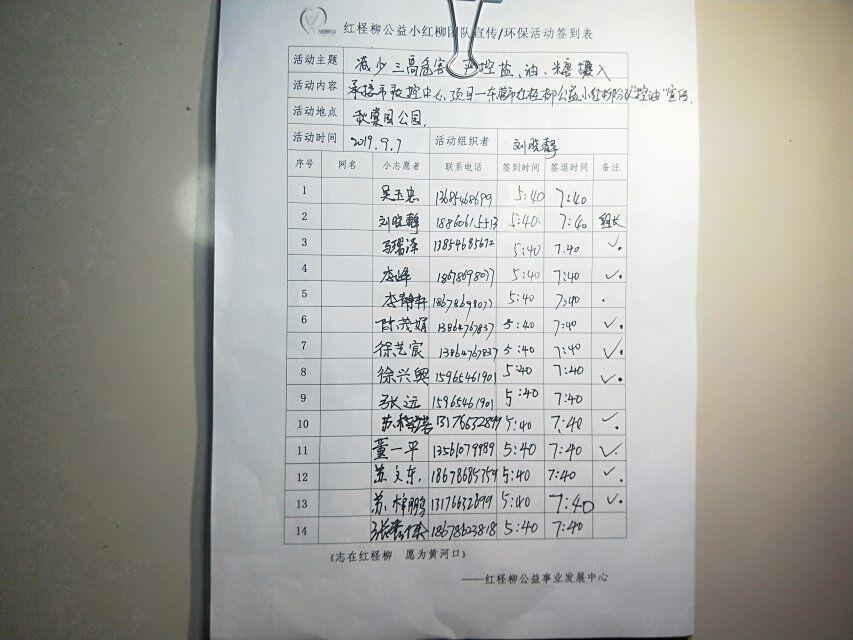 红柽柳公益小红柳团队宣传/环保活动签到表
活动主题 减少三高危害 控盐、油、糖摄入
活动内容 承接市疾控中心项目一东营市红柽柳公益小红柳 控油"宣传
活动地点 秋棠园公园.
活动时间 2019.9.7 活动组织者 刘晓静
序号 网名 小志愿者 联系电话 签到时间 签退时间 备注
1 吴玉忠 13685468699 5:40 7:40
2 刘晓静 18860615513 5:40 7:40 组长
3 马瑞泽 13854685672 5:40 7:40 ✓.
4 李峰 18678698077 5:40 7:40 ✓.
5 李静轩 18678698077 5:40 7:40 .
6 陈茂娟 13864767837 5:40 7:40 ✓.
7 徐艺宸 13864767837 5:40 7:40 ✓.
8 徐兴奥 15965461901 5:40 7:40 ✓.
9 张远 15965461901 5:40 7:40
10 苏梓 13176632899 5:40 7:40 ✓.
11 董一平 13561079989 5:40 7:40 ✓.
12 苏文东. 18678685759 5:40 7:40 ✓.
13 苏梓鹏 13176632899 5:40 7:40 ✓.
14 张 18678623818 5:40 7:40
《志在红柽柳 愿为黄河口》
——红柽柳公益事业发展中心